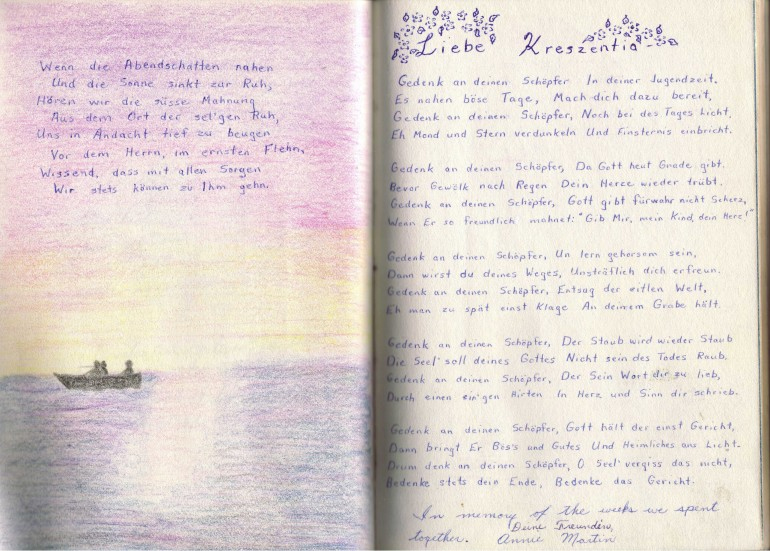 Wenn die Abendschatten nahen
Und die Sonne sinkt zur Ruh,
Hören wir die süsse Mahnung
Aus dem Ort der sel'gen Ruh,
Uns in Andacht tief zu beugen
Vor dem Herrn, im ernsten Flehn,
Wissend, dass mit allen Sorgen
Wir stets können zu Ihm gehn.
Liebe Kreszentia
Gedenk an deinen Schöpfer In deiner Jugendzeit.
Es nahen böse Tage, Mach dich dazu bereit,
Gedenk an deinen Schöpfer, Noch bei des Tages Licht,
Eh Mond und Stern verdunkeln Und Finsternis einbricht.
Gedenk an deinen Schöpfer, Da Gott heut Grade gibt.
Bevor Gewölk nach Regen Dein Herze wieder trübt.
Gedenk an deinen Schöpfer, Gott gibt fürwahr nicht Scherz,
Wenn Er so freundlich mahnet: "Gib Mir, mein Kind, dein Herz!"
Gedenk an deinen Schöpfer, Un lern gehorsam sein,
Dann wirst du deines Weges, Unsträflich dich erfreun.
Gedenk an deinen Schöpfer, Entsag der eitlen Welt,
Eh man zu spät einst Klage An deinem Grabe hält.
Gedenk an deinen Schöpfer, Der Staub wird wieder Staub
Die Seel' soll deines Gottes Nicht sein des Todes Raub.
Gedenk an deinen Schöpfer, Der Sein Wort dir zu lieb,
Durch einen ein'gen Hirten In Herz und Sinn dir schrieb.
Gedenk an deinen Schöpfer, Gott hält der einst Gericht,
Dann bringt Er Bös's und Gutes Und Heimliches ans Licht.
Drum denk an deinen Schöpfer, O Seel' vergiss das nicht,
Bedenke stets dein Ende, Bedenke das Gericht.
In memory of the weeks we spent
together. Deine Freundin,
Annie Martin